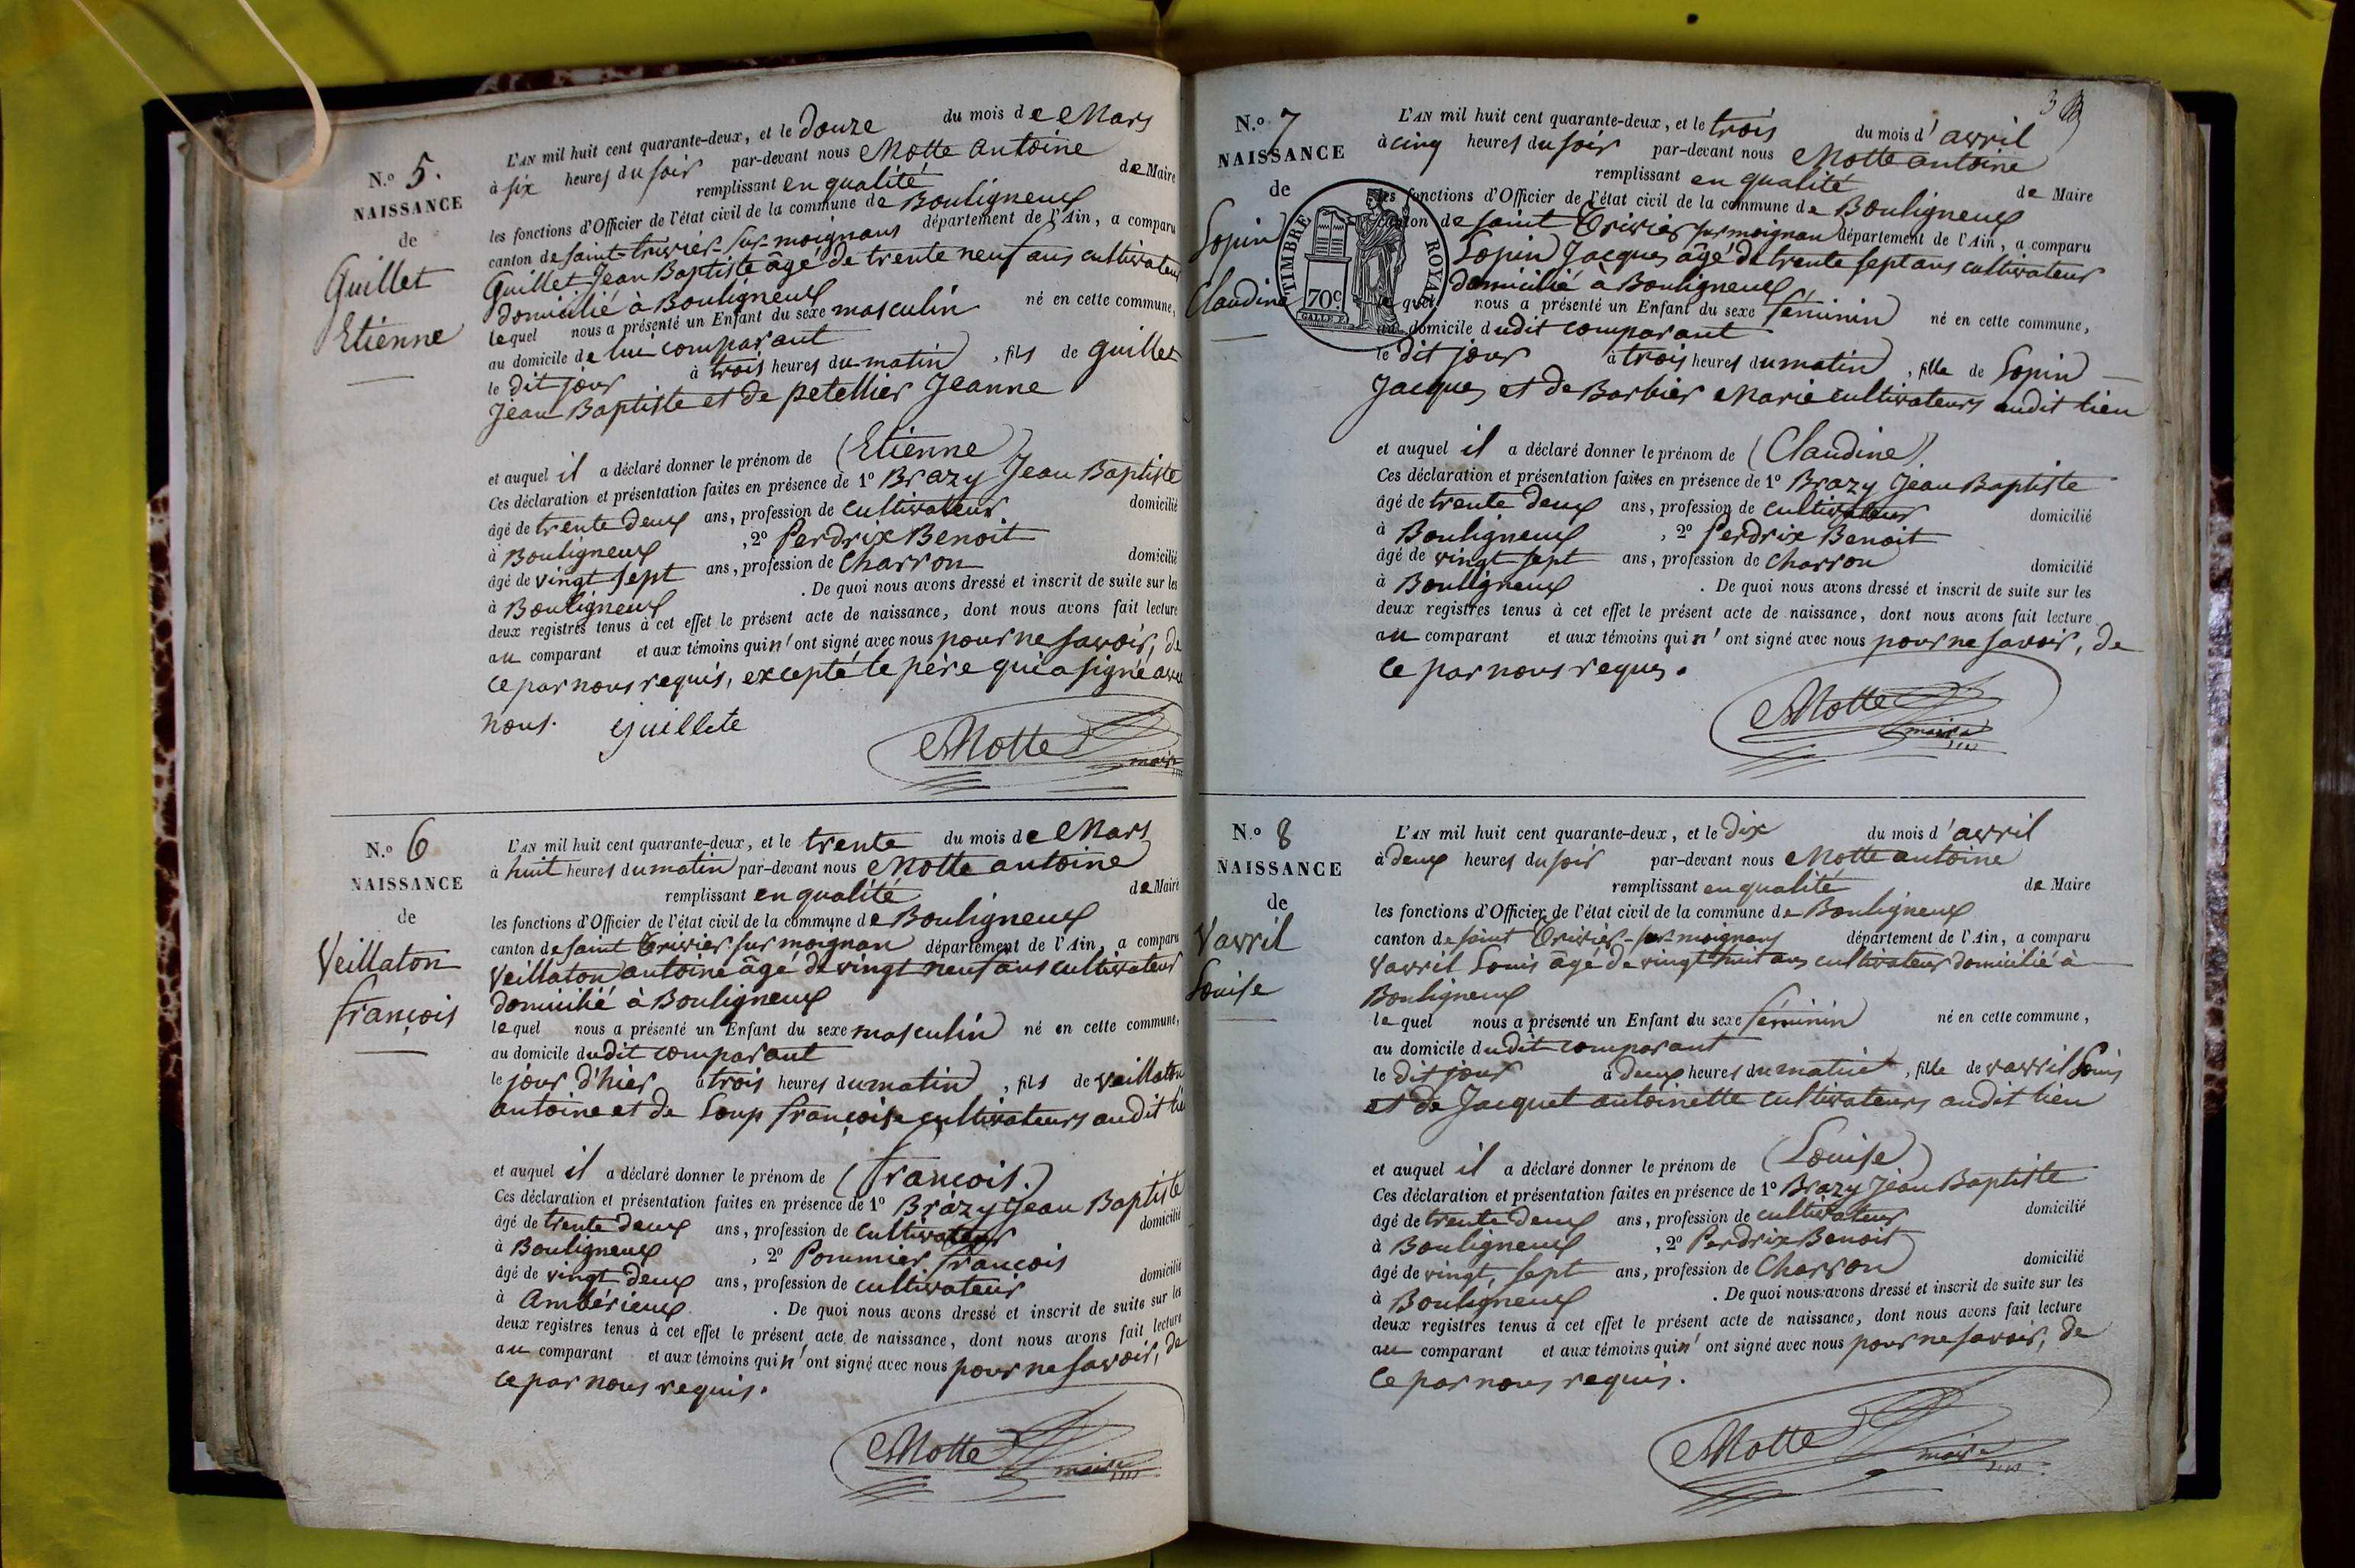 N.º 5.
NAISSANCE
de
Guillet
Etienne
L'AN mil huit cent quarante-deux, et le douze du mois de Mars
à six heures du soir par-devant nous Motte antoine
remplissant en qualité de Maire
les fonctions d'Officier de l'état civil de la commune de Bouligneux
canton de saint-trivier-sur-moignans département de l'Ain, a comparu
Guillet Jean Baptiste âgé de trente neuf ans cultivateur
domicilié à Bouligneux
lequel nous a présenté un Enfant du sexe masculin né en cette commune,
au domicile de lui comparant
le dit jour à trois heures du matin, fils de guillet
Jean Baptiste et de petellier Jeanne
et auquel il a déclaré donner le prénom de (Etienne)
Ces déclaration et présentation faites en présence de 1º Brazy Jean Baptiste
âgé de trente deux ans, profession de cultivateur domicilié
à Bouligneux, 2º Perdrix Benoit
âgé de vingt sept ans, profession de Charron domicilié
à Bouligneux. De quoi nous avons dressé et inscrit de suite sur les
deux registres tenus à cet effet le présent acte de naissance, dont nous avons fait lecture
au comparant et aux témoins qui n'ont signé avec nous pour ne savoir, de
ce par nous requis, excepté le père qui a signé avec
nous. guillete
Motte maire
N.º 6
NAISSANCE
de
Veillaton
françois
L'AN mil huit cent quarante-deux, et le trente du mois de Mars
à huit heures du matin par-devant nous Motte antoine
remplissant en qualité de Maire
les fonctions d'Officier de l'état civil de la commune de Bouligneux
canton de saint Trivier sur moignan département de l'Ain, a comparu
Veillaton antoine âgé de vingt neuf ans cultivateur
domicilié à Bouligneux
lequel nous a présenté un Enfant du sexe masculin né en cette commune,
au domicile dudit comparant
le jour d'hier à trois heures du matin, fils de veillaton
antoine et de Loup françoise cultivateurs audit lieu
et auquel il a déclaré donner le prénom de (françois.)
Ces déclaration et présentation faites en présence de 1º Brazy Jean Baptiste
âgé de trente deux ans, profession de cultivateur domicilié
à Bouligneux, 2º Pommier françois
âgé de vingt deux ans, profession de cultivateur domicilié
à Ambérieux. De quoi nous avons dressé et inscrit de suite sur les
deux registres tenus à cet effet le présent acte de naissance, dont nous avons fait lecture
au comparant et aux témoins qui n'ont signé avec nous pour ne savoir, de
ce par nous requis.
Motte maire
3
N.º 7
NAISSANCE
de
Lopin
Claudine
TIMBRE ROYAL
70c.
L'AN mil huit cent quarante-deux, et le trois du mois d'avril
à cinq heures du soir par-devant nous Motte antoine
remplissant en qualité de Maire
les fonctions d'Officier de l'état civil de la commune de Bouligneux
canton de saint Trivier sur moignan département de l'Ain, a comparu
Lopin Jacques âgé de trente sept ans cultivateur
domicilié à Bouligneux
lequel nous a présenté un Enfant du sexe féminin né en cette commune,
au domicile dudit comparant
le dit jour à trois heures du matin, fille de Lopin
Jacques et de Barbier Marie cultivateurs audit lieu
et auquel il a déclaré donner le prénom de (Claudine)
Ces déclaration et présentation faites en présence de 1º Brazy Jean Baptiste
âgé de trente deux ans, profession de cultivateur domicilié
à Bouligneux, 2º Perdrix Benoit
âgé de vingt sept ans, profession de charron domicilié
à Bouligneux. De quoi nous avons dressé et inscrit de suite sur les
deux registres tenus à cet effet le présent acte de naissance, dont nous avons fait lecture
au comparant et aux témoins qui n'ont signé avec nous pour ne savoir, de
ce par nous requis.
Motte maire
N.º 8
NAISSANCE
de
Vavril
Louise
L'AN mil huit cent quarante-deux, et le dix du mois d'avril
à deux heures du soir par-devant nous Motte antoine
remplissant en qualité de Maire
les fonctions d'Officier de l'état civil de la commune de Bouligneux
canton de saint Trivier-sur-moignans département de l'Ain, a comparu
Vavril Louis âgé de vingt huit ans cultivateur domicilié à
Bouligneux
lequel nous a présenté un Enfant du sexe féminin né en cette commune,
au domicile dudit comparant
le dit jour à deux heures du matin, fille de vavril Louis
et de Jacquet antoinette cultivateurs audit lieu
et auquel il a déclaré donner le prénom de (Louise)
Ces déclaration et présentation faites en présence de 1º Brazy Jean Baptiste
âgé de trente deux ans, profession de cultivateur domicilié
à Bouligneux, 2º Perdrix Benoit
âgé de vingt, sept ans, profession de Charron domicilié
à Bouligneux. De quoi nous avons dressé et inscrit de suite sur les
deux registres tenus à cet effet le présent acte de naissance, dont nous avons fait lecture
au comparant et aux témoins qui n'ont signé avec nous pour ne savoir, de
ce par nous requis.
Motte maire